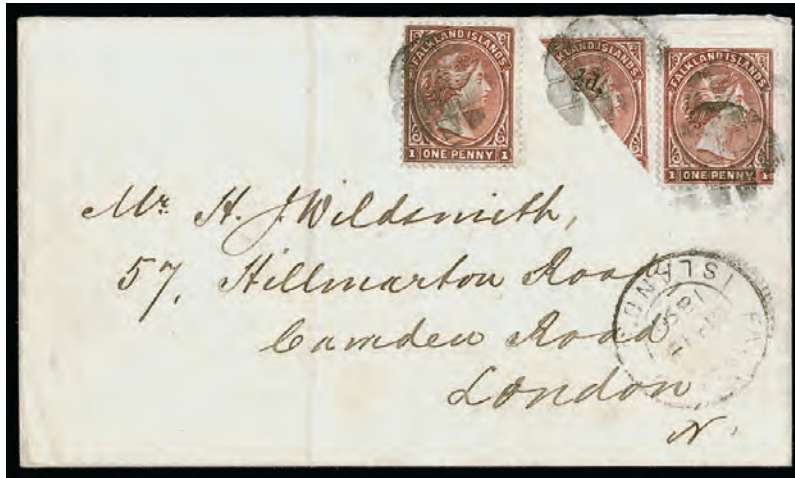 FALKLAND ISLANDS
1 ONE PENNY 1
FALKLAND ISLANDS
½d.
FALKLAND ISLANDS
1 ONE PENNY 1
Mr. H. J. Wildsmith,
57, Hillmarton Road
Camden Road,
London,
N.
ISLANDS